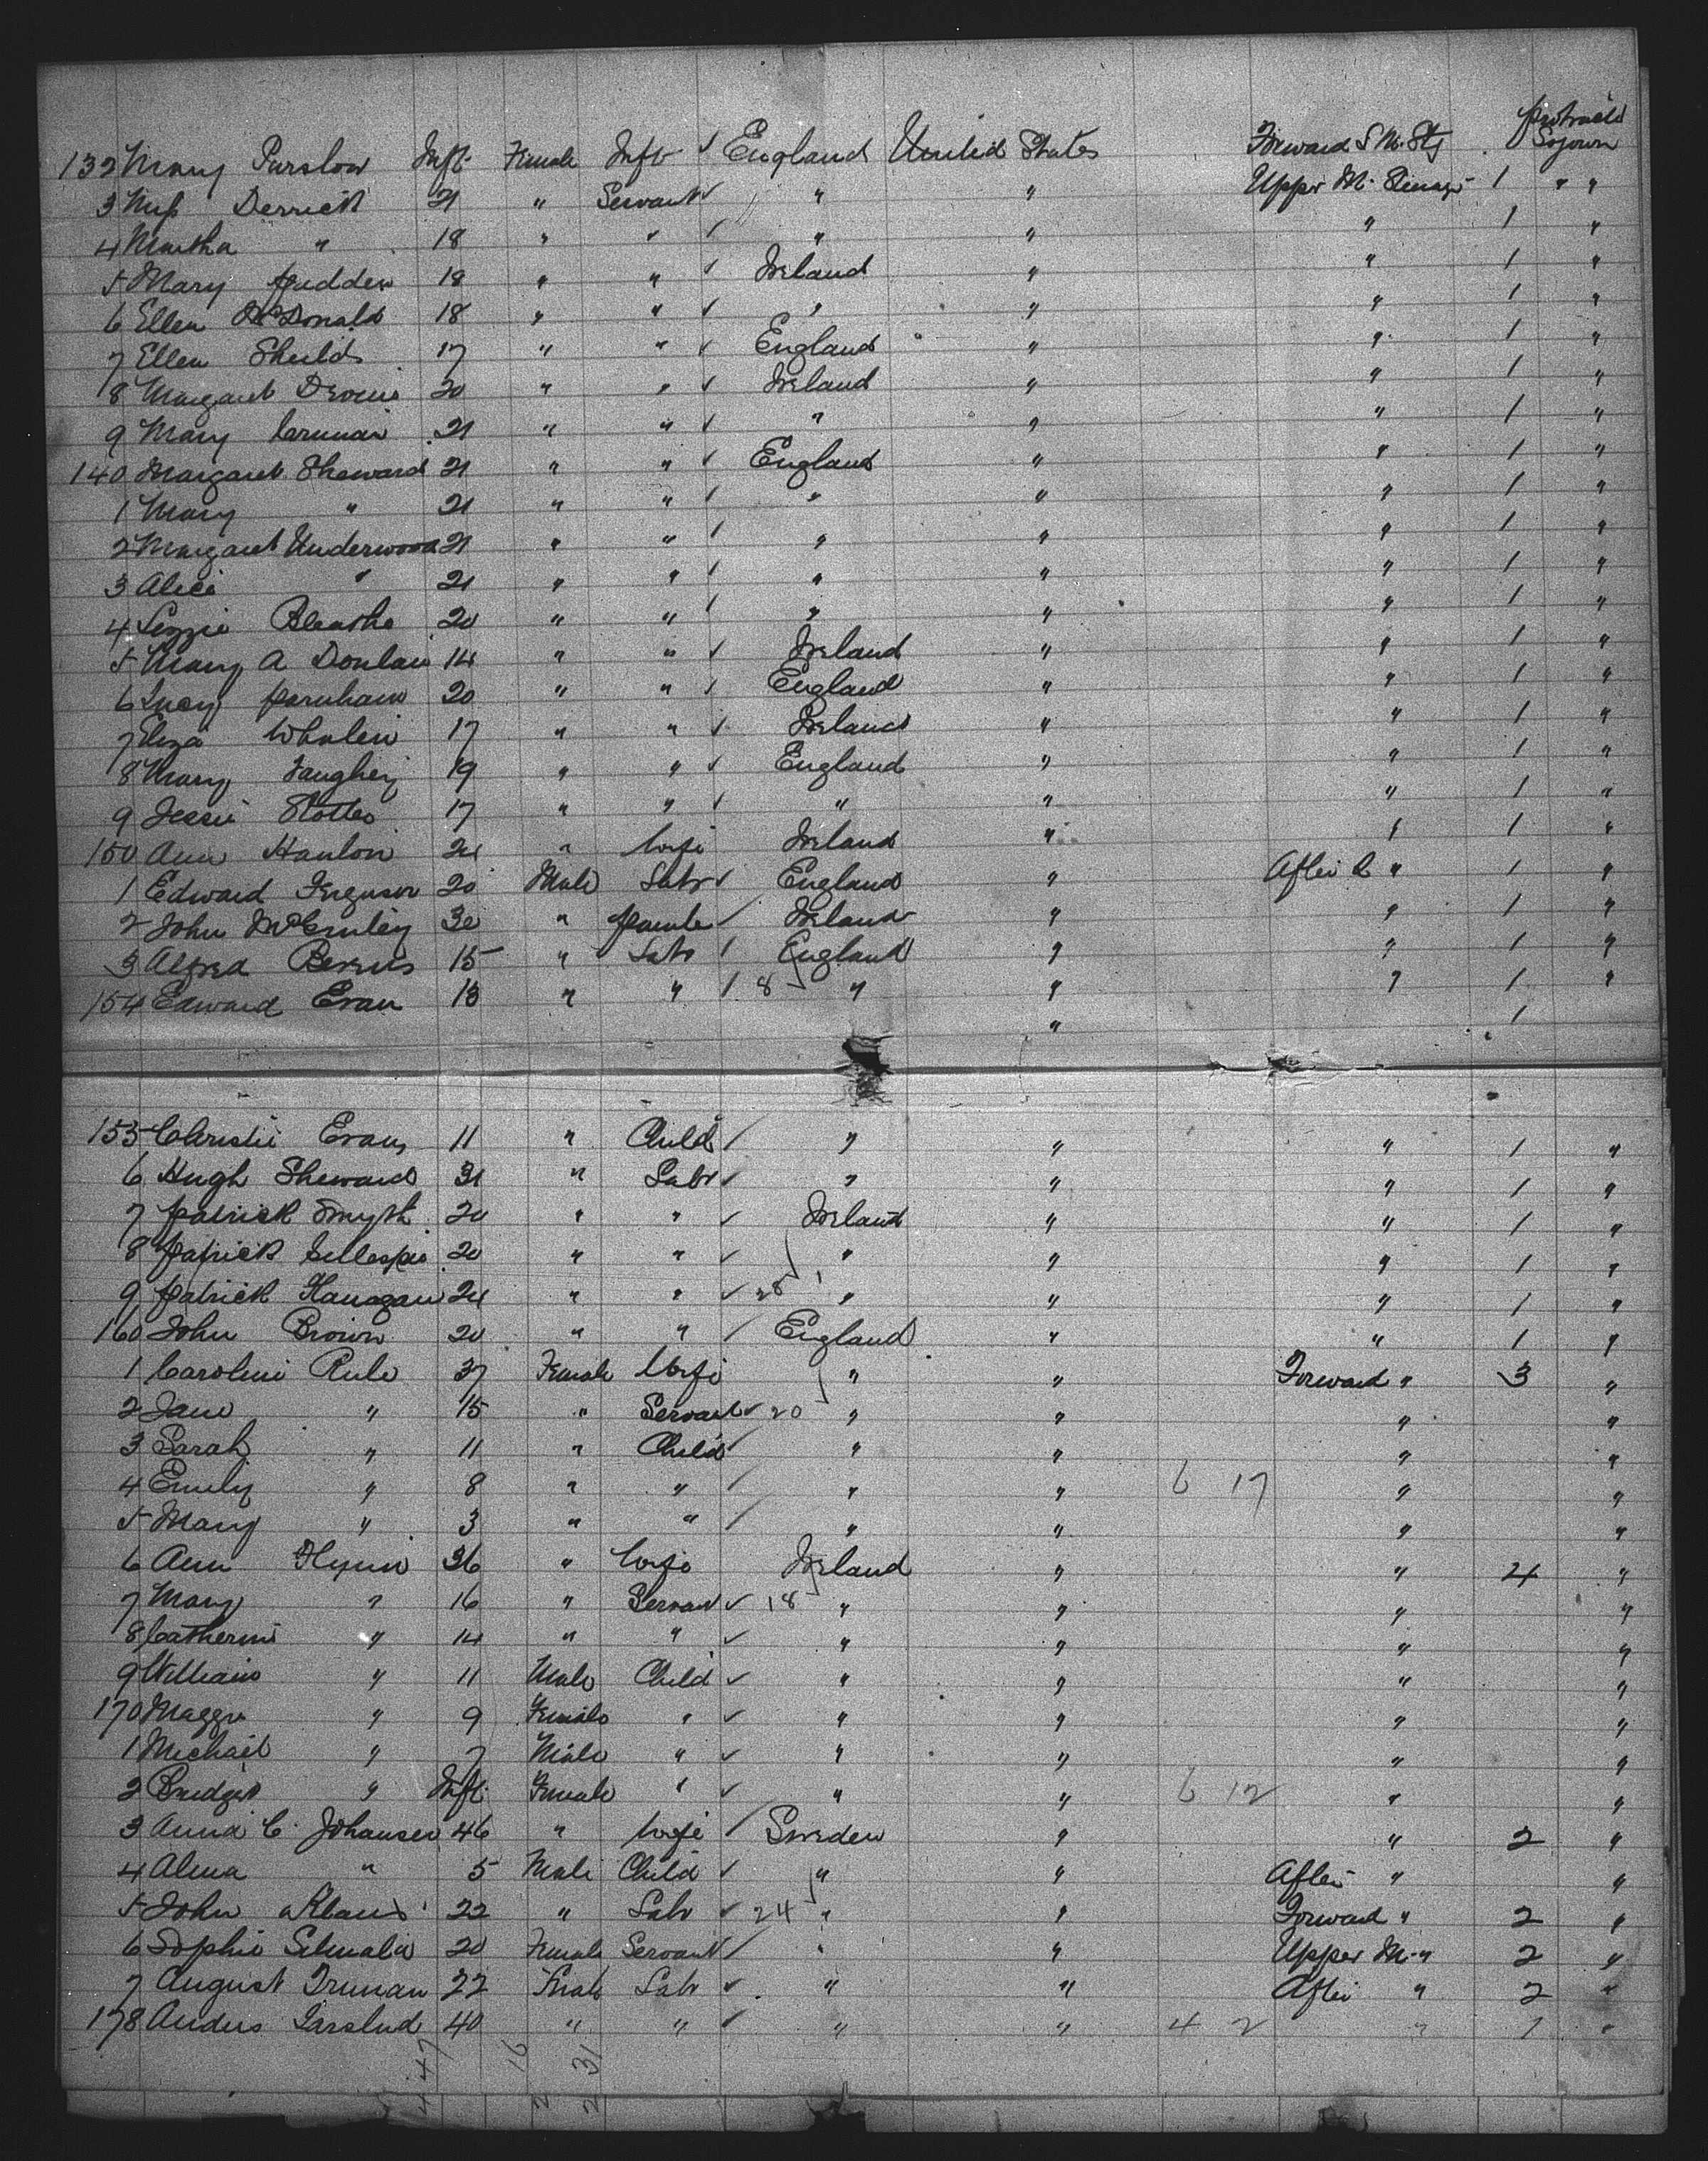 132 Mary Purslow Inft. Female Inft ✓ England United States Forward S M. Stg . protracted Sojourn
3 Miss Derrick 21 " Servant ✓ " " Upper M. 1 " "
4 Martha " 18 " " ✓ " " " 1 "
5 Mary 18 " " ✓ Ireland " " 1 "
6 Ellen McDonald 18 " " ✓ " " " 1 "
7 Ellen Sheilds 17 " " ✓ England " " 1 "
8 Margaret 20 " " ✓ Ireland " " 1 "
9 Mary 21 " " ✓ " " " 1 "
140 Margaret Sheward 21 " " ✓ England " " 1 "
1 Mary " 21 " " ✓ " " " 1 "
2 Margaret Underwood 21 " " ✓ " " " 1 "
3 Alice " 21 " " ✓ " " " 1 "
4 Lizzie 20 " " ✓ " " " 1 "
5 Mary A Donlan 14 " " ✓ Ireland " " 1 "
6 Lucy 20 " " ✓ England " " 1 "
7 Eliza Whalen 17 " " ✓ Ireland " " 1 "
8 Mary 19 " " ✓ England " " 1 "
9 Jessie 17 " " ✓ " " " 1 "
150 Ann Hanlon 24 " Wife Ireland " " 1 "
1 Edward Ferguson 20 Male Labr ✓ England " After " 1 "
2 John 30 " ✓ Ireland " " 1 "
3 Alfred 15 " Labr ✓ England " " 1 "
154 Edward Evan 13 " " ✓ 8 " " " 1 "
" 1
155 Christie Evans 11 " Child ✓ " " " 1 "
6 Hugh Sheward 31 " Labr ✓ " " " 1 "
7 Patrick Smyth 20 " " ✓ Ireland " " 1 "
8 Patrick Gillespie 20 " " ✓ " " " 1 "
9 Patrick Flanagan 24 " " ✓ 25 " " " 1 "
160 John Brown 20 " " ✓ England " " 1 "
1 Caroline Rule 37 Female Wife " " Forward " 3 "
2 Jane " 15 " Servant ✓ 20 " " " "
3 Sarah " 11 " Child ✓ " " " "
4 Emily " 8 " " ✓ " " 6 17 " "
5 Mary " 3 " " ✓ " " " "
6 Ann Flynn 36 " Wife Ireland " " 4 "
7 Mary " 16 " Servant ✓ 18 " " " "
8 Catherine " 14 " " ✓ " " " "
9 William " 11 Male Child ✓ " " " "
170 Maggie " 9 Female " ✓ " " " "
1 Michael " 7 Male " ✓ " " " "
2 Bridget " Inft. Female " ✓ " " 6 12 " "
3 Anna C. Johansen 46 " Wife ✓ Sweden " " 2 "
4 Alma " 5 Male Child ✓ " " After " "
5 John Klaus 22 " Labr ✓ 24 " " Forward " 2 "
6 Sophie 20 Female Servant ✓ " " Upper M. " 2 "
7 August Truman 22 Male Labr ✓ " " After " 2 "
178 Anders 40 " " ✓ " " 4 2 " 1 "
4 47 2 16 2 31